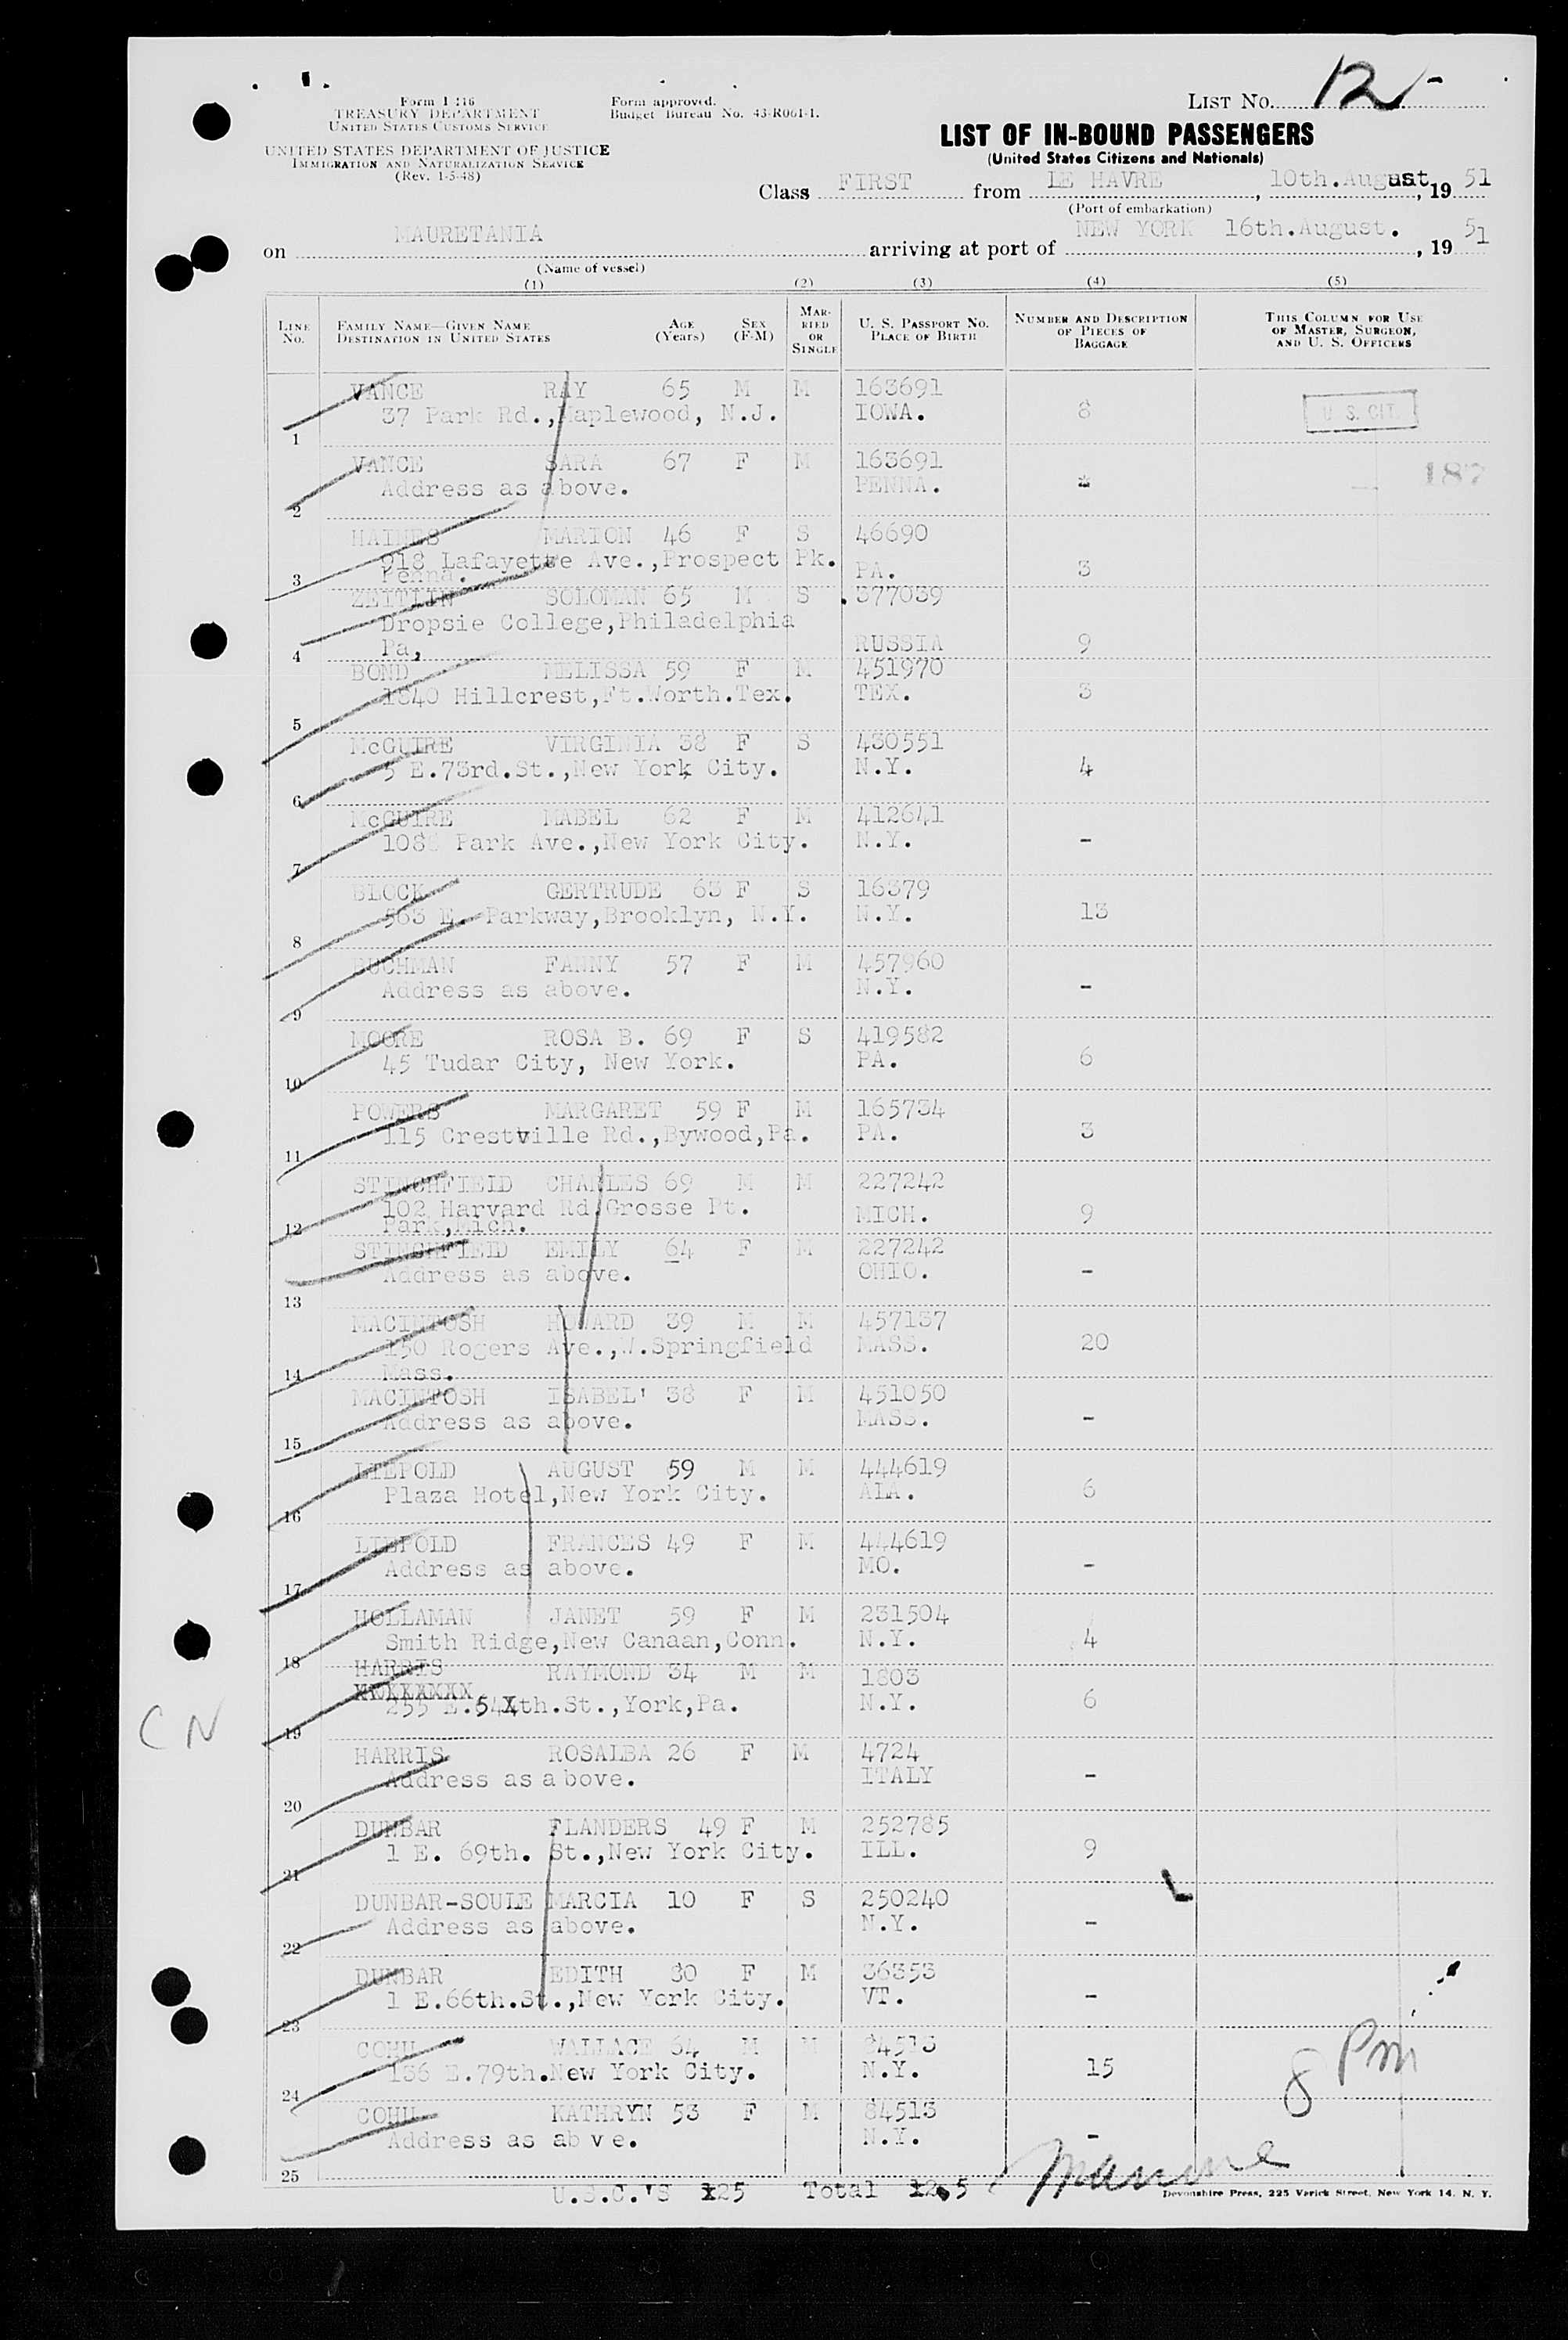 LIST NO. 12
Form I 416
TREASURY DEPARTMENT
UNITED STATES CUSTOMS SERVICE
Form approved.
Budget Bureau No. 43-R061-1.
UNITED STATES DEPARTMENT OF JUSTICE
IMMIGRATION AND NATURALIZATION SERVICE
(Rev. 1-5-48)
LIST OF IN-BOUND PASSENGERS
(United States Citizens and Nationals)
Class FIRST from LE HAVRE, 10th.August, 19 51
(Port of embarkation)
on MAURETANIA arriving at port of NEW YORK 16th.August., 19 51
(Name of vessel)
(1) (2) (3) (4) (5)
LINE NO. FAMILY NAME—GIVEN NAME DESTINATION IN UNITED STATES AGE (Years) SEX (F-M) MARRIED OR SINGLE U. S. PASSPORT NO. PLACE OF BIRTH NUMBER AND DESCRIPTION OF PIECES OF BAGGAGE THIS COLUMN FOR USE OF MASTER, SURGEON, AND U. S. OFFICERS
VANCE RAY 65 M M 163691
1 37 Park Rd.,Maplewood, N.J. IOWA. 8 U. S. CIT.
VANCE SARA 67 F M 163691 187
2 Address as above. PENNA.
HAINES MARION 46 F S 46690
918 Lafayette Ave.,Prospect Pk.
3 Penna. PA. 3
ZEITLIN SOLOMAN 65 M S 377039
Dropsie College,Philadelphia
4 Pa, RUSSIA 9
BOND MELISSA 59 F M 451970
5 1840 Hillcrest,Ft.Worth.Tex. TEX. 3
McGUIRE VIRGINIA 38 F S 430551
6 5 E.73rd.St.,New York City. N.Y. 4
McGUIRE MABEL 62 F M 412641
7 1088 Park Ave.,New York City. N.Y. -
BLOCK GERTRUDE 63 F S 16379
8 563 E. Parkway,Brooklyn, N.Y. N.Y. 13
BUCHMAN FANNY 57 F M 457960
9 Address as above. N.Y. -
MOORE ROSA B. 69 F S 419582
10 45 Tudar City, New York. PA. 6
POWERS MARGARET 59 F M 165734
11 115 Crestville Rd.,Bywood,Pa. PA. 3
STINCHFIELD CHARLES 69 M M 227242
102 Harvard Rd.Grosse Pt.
12 Park,Mich. MICH. 9
STINCHFIELD EMILY 64 F M 227242
13 Address as above. OHIO. -
MACINTOSH HOWARD 39 M M 457137
150 Rogers Ave.,W.Springfield MASS. 20
14 Mass.
MACINTOSH ISABEL' 38 F M 451050
15 Address as above. MASS. -
LIEPOLD AUGUST 59 M M 444619
16 Plaza Hotel,New York City. ALA. 6
LIEPOLD FRANCES 49 F M 444619
17 Address as above. MO. -
HOLLAMAN JANET 59 F M 231504
18 Smith Ridge,New Canaan,Conn. N.Y. 4
HARRIS RAYMOND 34 M M 1803
19 255 E.54th.St.,York,Pa. N.Y. 6
C N
HARRIS ROSALBA 26 F M 4724
20 Address as above. ITALY -
DUNBAR FLANDERS 49 F M 252785
21 1 E. 69th. St.,New York City. ILL. 9
DUNBAR-SOULE MARCIA 10 F S 250240
22 Address as above. N.Y. -
DUNBAR EDITH 80 F M 36353
23 1 E.66th.St.,New York City. VT. -
COHU WALLACE 64 M M 84513
24 136 E.79th.New York City. N.Y. 15
8 Pm
COHU KATHRYN 53 F M 84513
25 Address as ab ve. N.Y. -
U.S.C.'S 25 Total 25
Devonshire Press, 225 Varick Street, New York 14, N. Y.